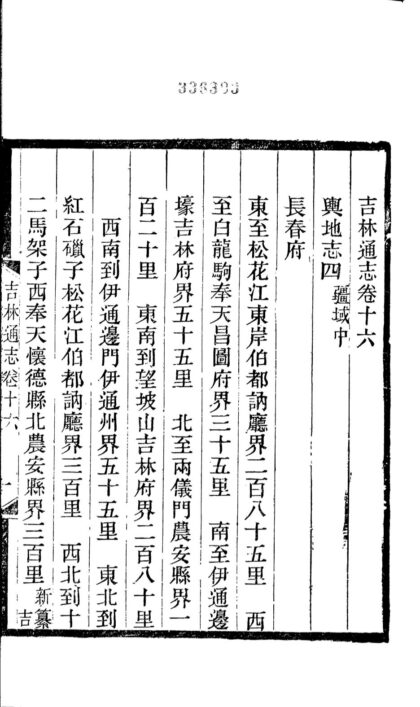 336393
吉林通志卷十六
輿地志四 疆域中
長春府
東至松花江東岸伯都訥廳界二百八十五里 西
至白龍駒奉天昌圖府界三十五里 南至伊通邊
壕吉林府界五十五里 北至兩儀門農安縣界一
百二十里 東南到望坡山吉林府界二百八十里
西南到伊通邊門伊通州界五十五里 東北到
紅石礮子松花江伯都訥廳界三百里 西北到十
二馬架子西奉天懷德縣北農安縣界三百里 新纂 吉
吉林通志卷十六 一